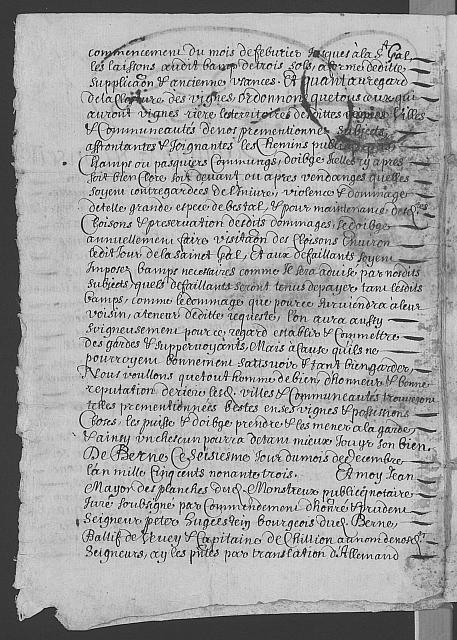 commencement du mois de feburier Jusques à la St Gal,
les laissons audit bamp de trois solz, a forme de ditte
supplicaon & ancienne usances. Et quant au regard
de la closture des vignes ordonnons que tous ceux qui
auront vignes riere les territoires desdittes villes
& Communautés de nos prementionnes subjects,
affrontantes & Joignantes les Chemins publiqz
Champs ou pasquiers Communqs, doibge icelles cy apres
soit bien clore soit devant ou apres vendanges quelles
soyent contregardees de l'Iniure, violence & dommage
de telle grande espece de bestal, & pour maintenance desd.
Cloisons & preservation desdits dommages, se doibge
annuellement faire visitaon des Cloisons environ
ledit Jour de la Sainct Gal, Et aux defaillants soyent
Imposez bamps necessaires comme Il sera advisé par nosdits
Subjects, quels defaillants seront tenus de payer tant lesdits
bamps, comme le dommage que pource surviendra a leur
voisin, a teneur de ditte requeste, l'on aura aussy
soigneusement pour ce regard establir & Commettre
des gardes & supervoyants, Mais a cause qu'ils ne
pourroyent bonnement satisvoir & tant bien garder,
Nous voullons que tout homme de bien d'honneur & bonne
reputation de riere lesd. villes & Communautés trouverons
telles prementionnées bestes en ses vignes & possessions
Closes, les puisse & doibge prendre & les mener a la garde,
& ainsy un chescun pourra de tant mieux Jouyr son bien.
De Berne Ce Seisiesme Jour du mois de Decembre
l'an mille Cinqcents nonante trois. Et moy Jean
Mayor des planches dud. Monstreux public notaire
Juré soubsigné par Commendement d'honné & prudent
Seigneur peter bourgeois dud. Berne
Ballif de Vevey & Capitaine de Chillion au nom de nosd.
Seigneurs, ay les pntes par translation d'Allemand